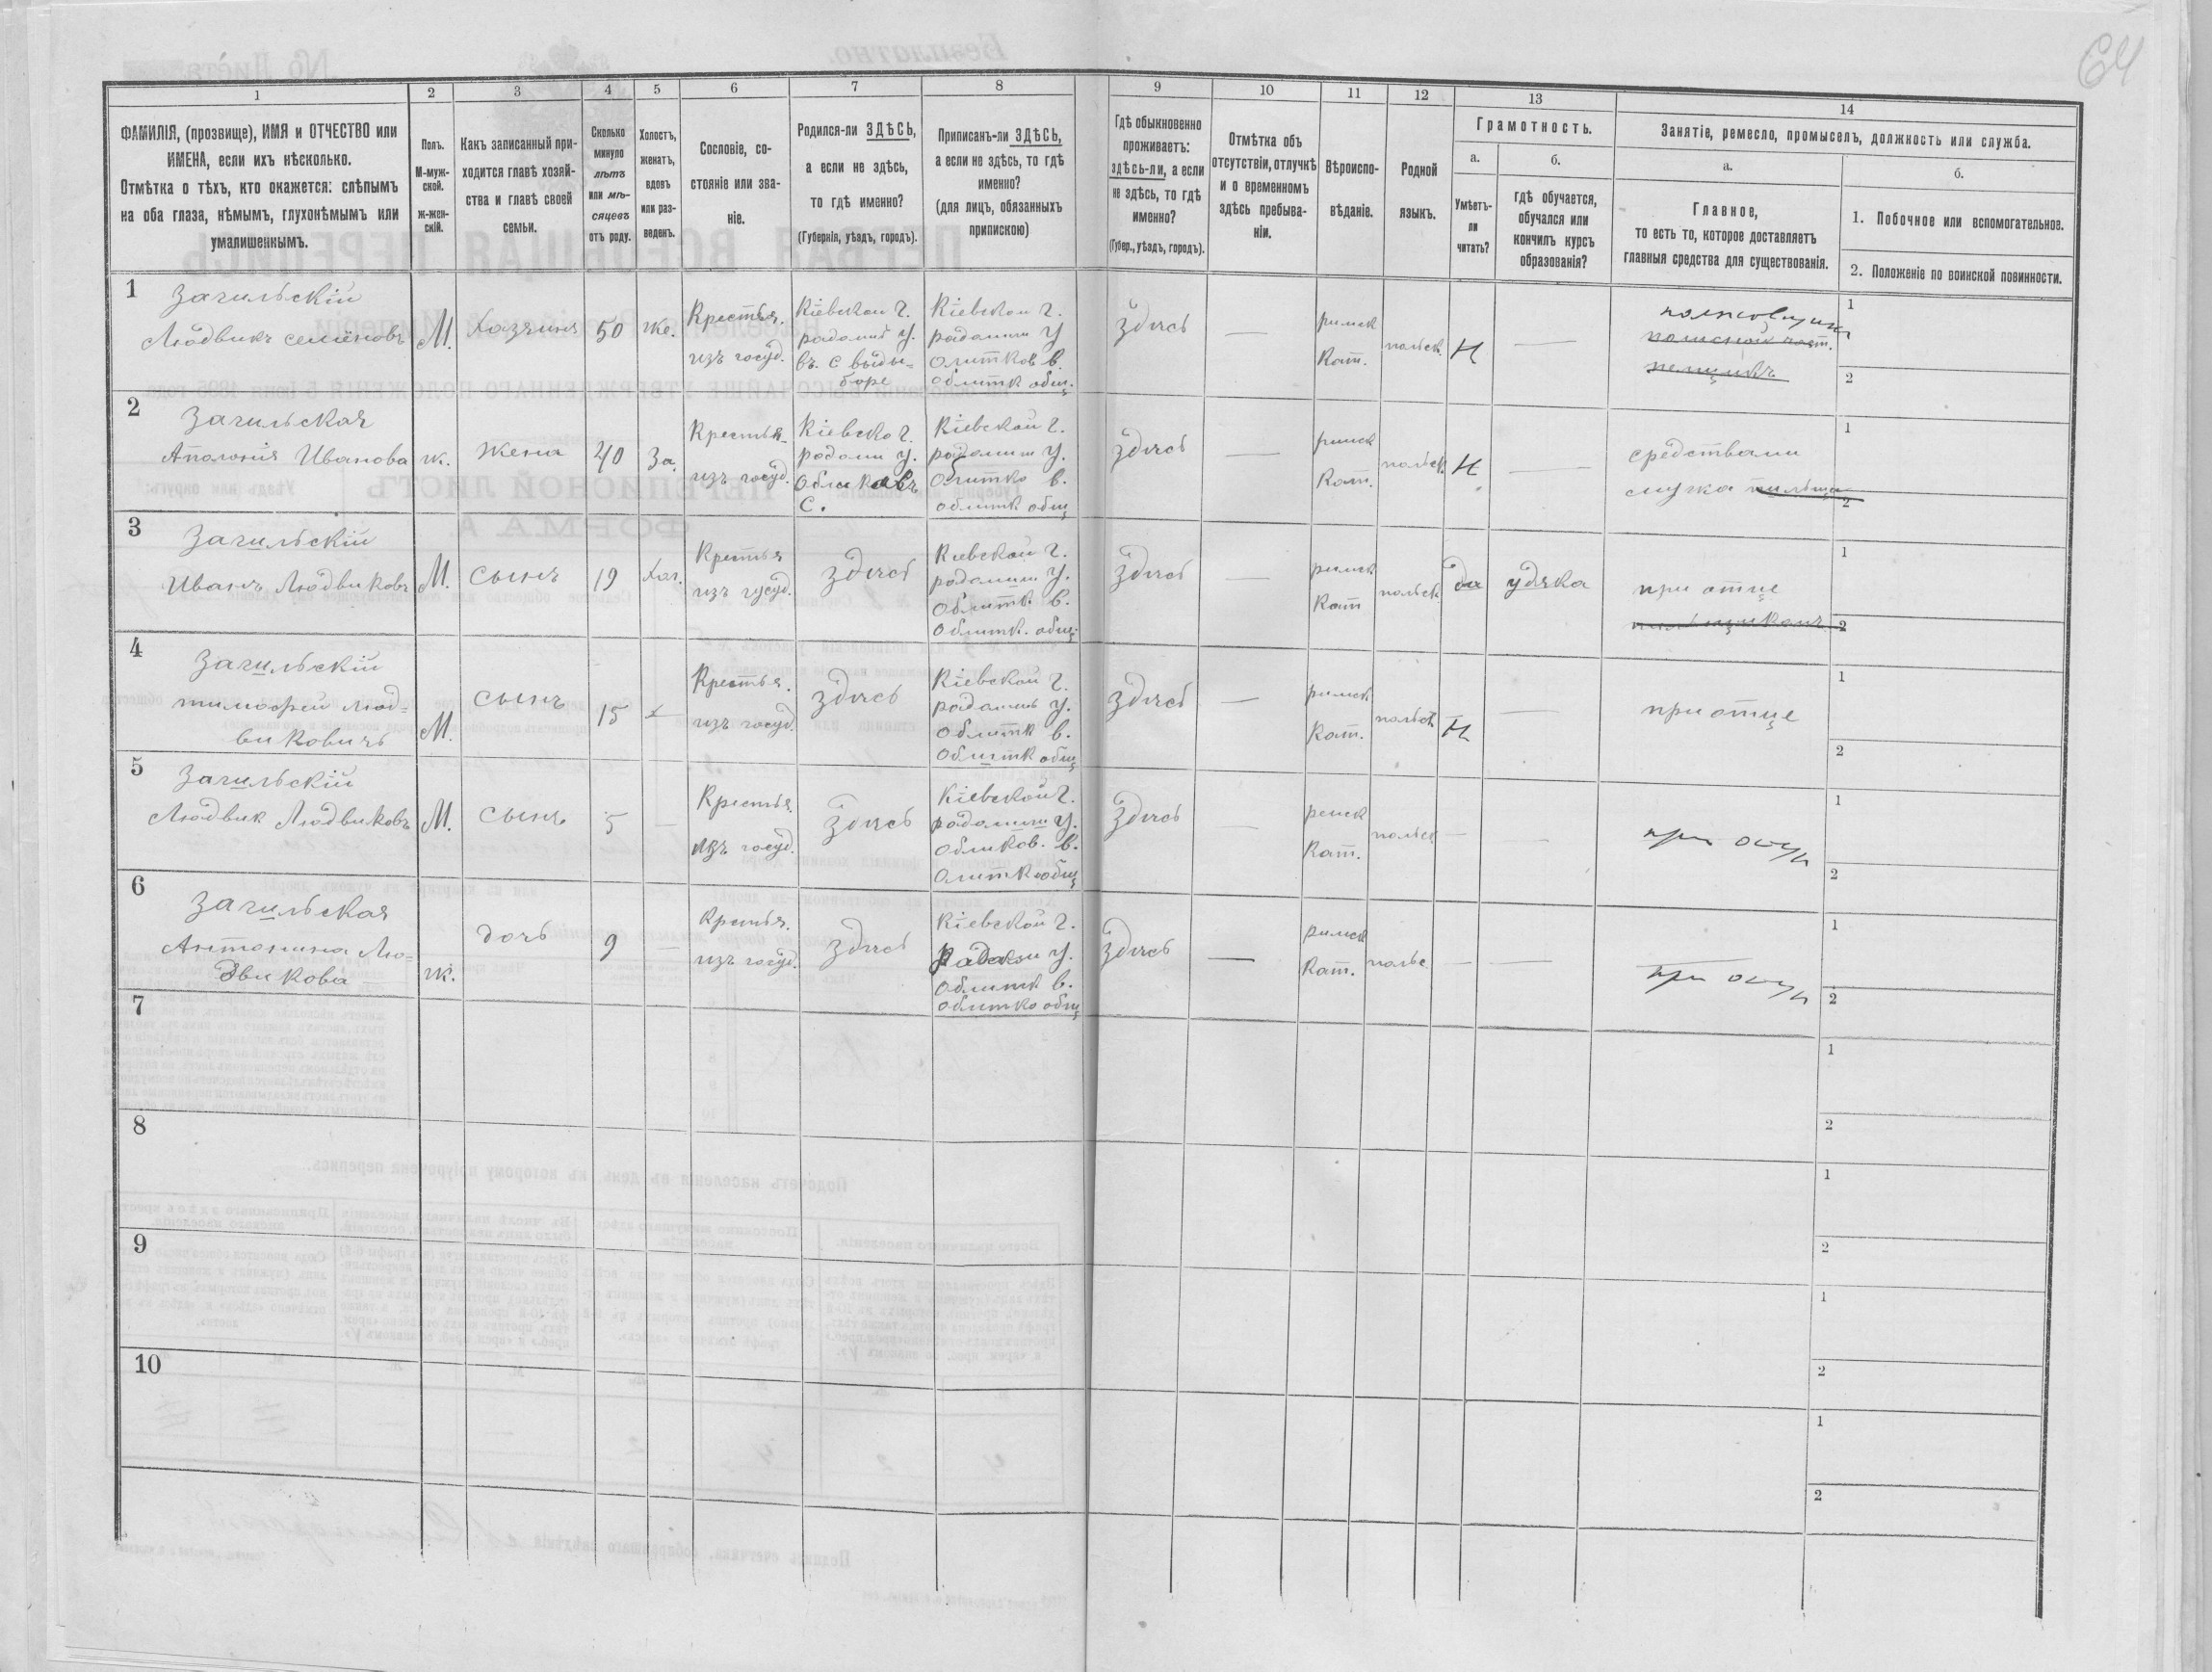 64
1
2
3
4
5
6
7
8
9
10
11
12
13
14
ФАМИЛІЯ, (прозвище), ИМЯ и ОТЧЕСТВО или
ИМЕНА, если ихъ нѣсколько.
Отмѣтка о тѣхъ, кто окажется: слѣпымъ
на оба глаза, нѣмымъ, глухонѣмымъ или
умалишеннымъ.
Полъ.
М-муж-
ской.
Ж-жен-
скій.
Какъ записанный при-
ходится главѣ хозяй-
ства и главѣ своей
семьи.
Сколько
минуло
лѣтъ
или мѣ-
сяцевъ
отъ роду.
Холостъ,
женатъ,
вдовъ
или раз-
веденъ.
Сословіе, со-
стояніе или зва-
ніе.
Родился-ли ЗДѢСЬ,
а если не здѣсь,
то гдѣ именно?
(Губернія, уѣздъ, городъ).
Приписанъ-ли ЗДѢСЬ,
а если не здѣсь, то гдѣ
именно?
(для лицъ, обязанныхъ
припискою)
Гдѣ обыкновенно
проживаетъ:
здѣсь-ли, а если
не здѣсь, то гдѣ
именно?
(Губер., уѣздъ, городъ).
Отмѣтка объ
отсутствіи, отлучкѣ
и о временномъ
здѣсь пребыва-
ніи.
Вѣроиспо-
вѣданіе.
Родной
языкъ.
Грамотность.
а.
Умѣетъ-
ли
читать?
б.
гдѣ обучается,
обучался или
кончилъ курсъ
образованія?
Занятіе, ремесло, промыселъ, должность или служба.
а.
Главное,
то есть то, которое доставляетъ
главныя средства для существованія.
б.
1. Побочное или вспомогательное.
2. Положеніе по воинской повинности.
1
Загильскій
Людвикъ семёновъ
М.
Хазяинъ
50
же.
Крестья.
изъ госуд.
Кіевской г.
радомыс у.
въ. с выды-
боре
Кіевской г.
радомыш у
олитков в.
облитк общ.
здись
—
римск
Кат.
польск.
Н
—
1
2
2
Загильская
Аполонія Иванова
ж.
жена
40
За.
Крестья-
изъ госуд.
Кіевско г.
радоми у.
с.
Кіевской г.
радомыш у.
олитко в.
облитк общ
здись
—
римск
Кат.
польск.
Н
—
средствами
мужа
1
2
3
Загильскій
Иванъ Людвиковъ
М.
сынъ
19
Хол.
Крестья
изъ гусуд.
здись
Киевской г.
радомыш у.
облитк. в.
облитк. общ.
здись
—
римск
Кат
польск
да
удяка
при отце
1
2
4
Загильскій
тимофей люд-
виковичъ
М.
сынъ
15
х
Крестья.
изъ госуд.
здись
Кіевской г.
радомыш у.
облитк в.
облитк общ
здись
—
римск
Кат.
польск
Н
—
при отце
1
2
5
Загильскій
Людвик Людвиковъ
М.
сынъ
5
—
Крестья.
изъ госуд.
здись
Кіевской г.
радомиш у.
обликов. в.
олитк общ
здись
—
римск
Кат.
польск
—
—
при отц
1
2
6
Загильская
Антонина Лю-
двикова
ж.
дочь
9
—
Крестья.
изъ госуд.
здись
Кіевской г.
радоми у.
облитк в.
облитко общ
здись
—
римск
Кат.
польс.
—
—
при отц
1
2
7
1
2
8
1
2
9
1
2
10
1
2